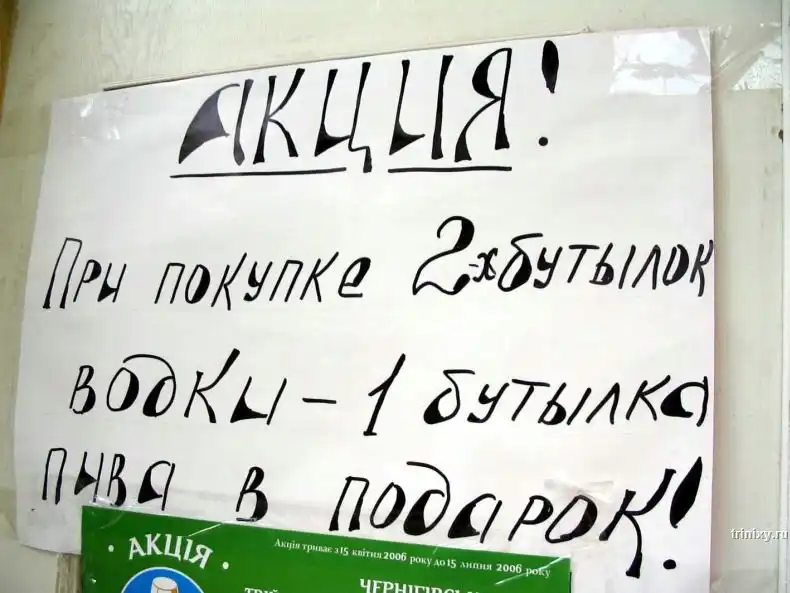 АКЦИЯ!
При покупке 2-х бутылок
водки – 1 бутылка
пива в подарок!
· АКЦІЯ ·
Акція триває з 15 квітня 2006 року до 15 липня 2006 року
trinixy.ru